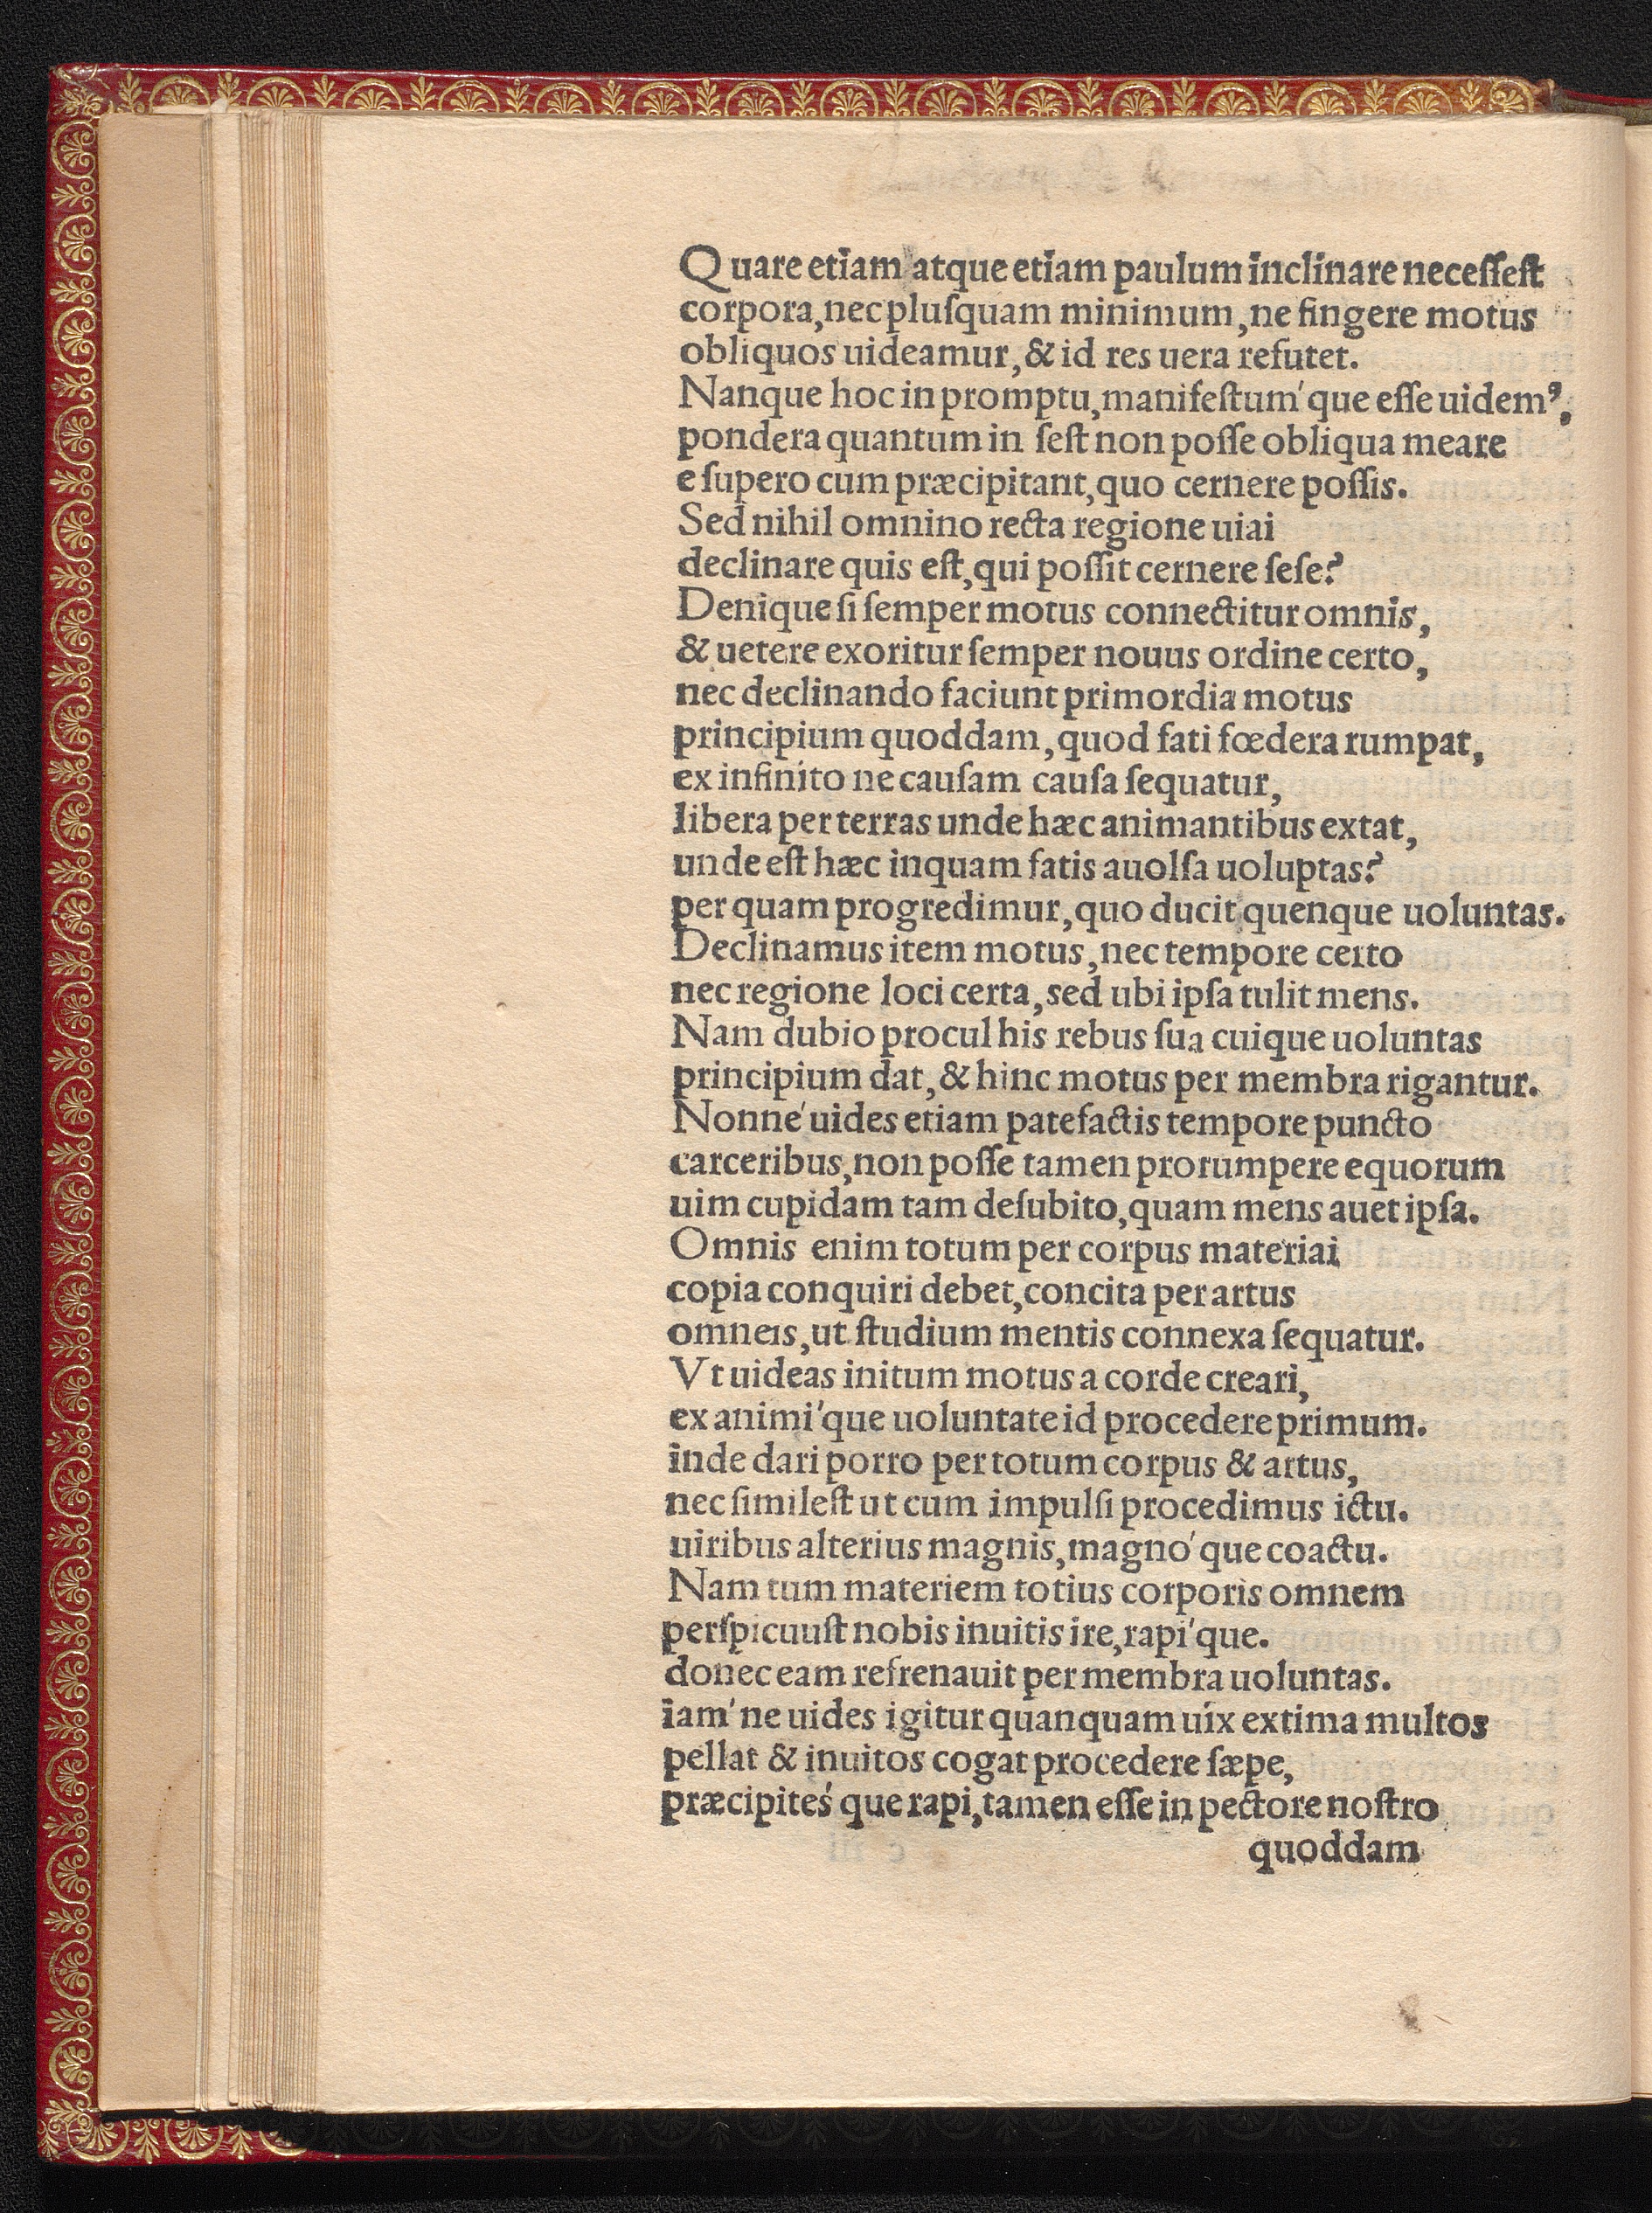 Quare etiam atque etiam paulum inclinare neceſſeſt
corpora,nec pluſquam minimum,ne fingere motus
obliquos uideamur,& id res uera refutet.
Nanque hoc in promptu,manifeſtum'que eſſe uidemꝰ,
pondera quantum in ſeſt non poſſe obliqua meare
e ſupero cum præcipitant,quo cernere poſſis.
Sed nihil omnino recta regione uiai
declinare quis eſt,qui poſſit cernere ſeſe?
Denique ſi ſemper motus connectitur omnis,
& uetere exoritur ſemper nouus ordine certo,
nec declinando faciunt primordia motus
principium quoddam,quod fati fœdera rumpat,
ex infinito ne cauſam cauſa ſequatur,
libera per terras unde hæc animantibus extat,
unde eſt hæc inquam fatis auolſa uoluptas?
per quam progredimur,quo ducit quenque uoluntas.
Declinamus item motus,nec tempore certo
nec regione loci certa,sed ubi ipſa tulit mens.
Nam dubio procul his rebus ſua cuique uoluntas
principium dat,& hinc motus per membra rigantur.
Nonne' uides etiam patefactis tempore puncto
carceribus,non poſſe tamen prorumpere equorum
uim cupidam tam deſubito,quam mens auet ipſa.
Omnis enim totum per corpus materiai
copia conquiri debet,concita per artus
omneis,ut ſtudium mentis connexa ſequatur.
Vt uideas initum motus a corde creari,
ex animi'que uoluntate id procedere primum.
inde dari porro per totum corpus & artus,
nec ſimileſt ut cum impulſi procedimus ictu.
uiribus alterius magnis,magno'que coactu.
Nam tum materiem totius corporis omnem
perſpicuuſt nobis inuitis ire,rapi'que.
donec eam refrenauit per membra uoluntas.
iam'ne uides igitur quanquam uix extima multos
pellat & inuitos cogat procedere ſæpe,
præcipites'que rapi,tamen eſſe in pectore noſtro
quoddam